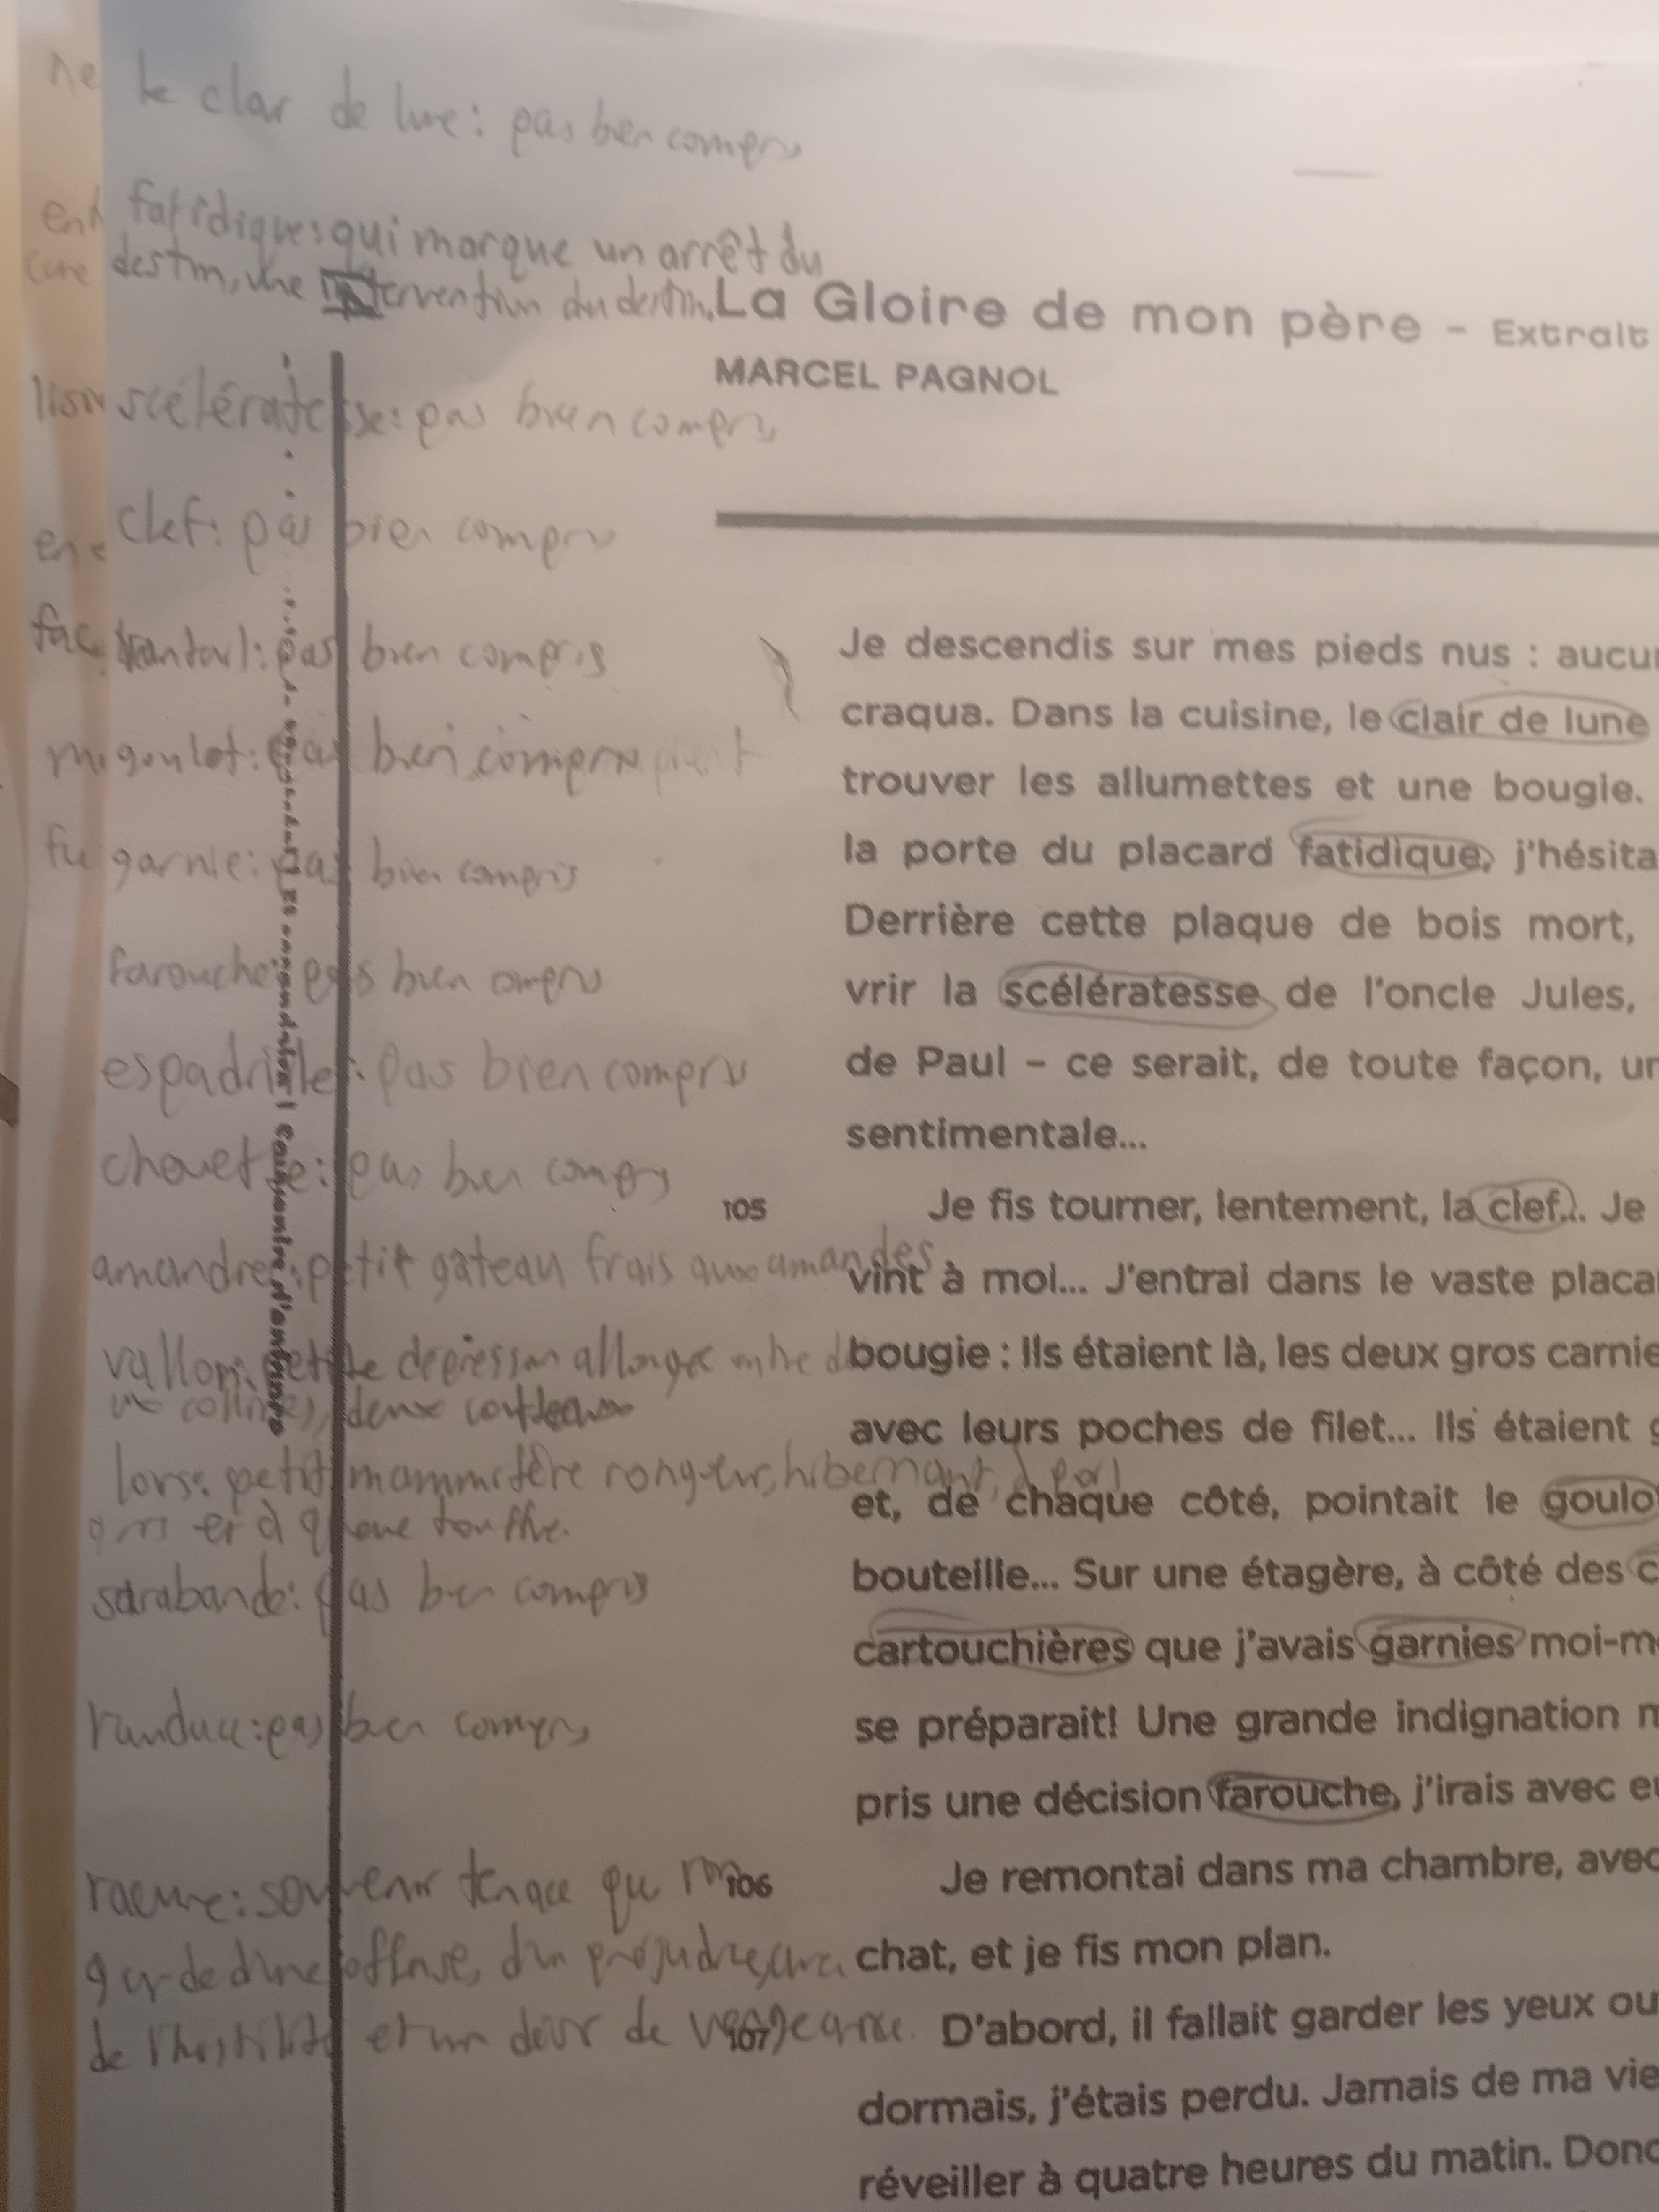 ne
le clar de lune : pas bien compris
fatidique : qui marque un arrêt du
destin, une intervention du destin.
scélératesse : pas bien compris
clef : pas bien compris
pas bien compris
goulot : pas bien compris
garnie : pas bien compris
farouche : pas bien compris
espadrilles : pas bien compris
chouette : pas bien compris
amandre : petit gâteau frais aux amandes
vallon : petite dépression allongée entre
collines, deux
petit mammifère rongeur, hibernant, à poil
gris et à queue touffue.
sarabande : pas bien compris
pas bien compris
souvenir tenace que l'on
garde d'une offense, d'un préjudice, avec
de l'hostilité et un désir de vengeance.
La Gloire de mon père - Extrait
MARCEL PAGNOL
Je descendis sur mes pieds nus : aucu
craqua. Dans la cuisine, le clair de lune
trouver les allumettes et une bougie.
la porte du placard fatidique, j'hésita
Derrière cette plaque de bois mort,
vrir la scélératesse de l'oncle Jules,
de Paul – ce serait, de toute façon, un
sentimentale...
105 Je fis tourner, lentement, la clef... Je
vint à moi... J'entrai dans le vaste placa
bougie : Ils étaient là, les deux gros carnie
avec leurs poches de filet... Ils étaient
et, de chaque côté, pointait le goulo
bouteille... Sur une étagère, à côté des
cartouchières que j'avais garnies moi-m
se préparait! Une grande indignation
pris une décision farouche, j'irais avec
106 Je remontai dans ma chambre, avec
chat, et je fis mon plan.
107 D'abord, il fallait garder les yeux ou
dormais, j'étais perdu. Jamais de ma vie
réveiller à quatre heures du matin. Donc